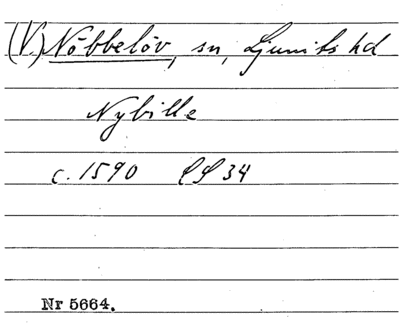 (V.) Nöbbelöv, sn, Ljunits hd
Nybille
c. 1590 LS 34
Nr 5664.